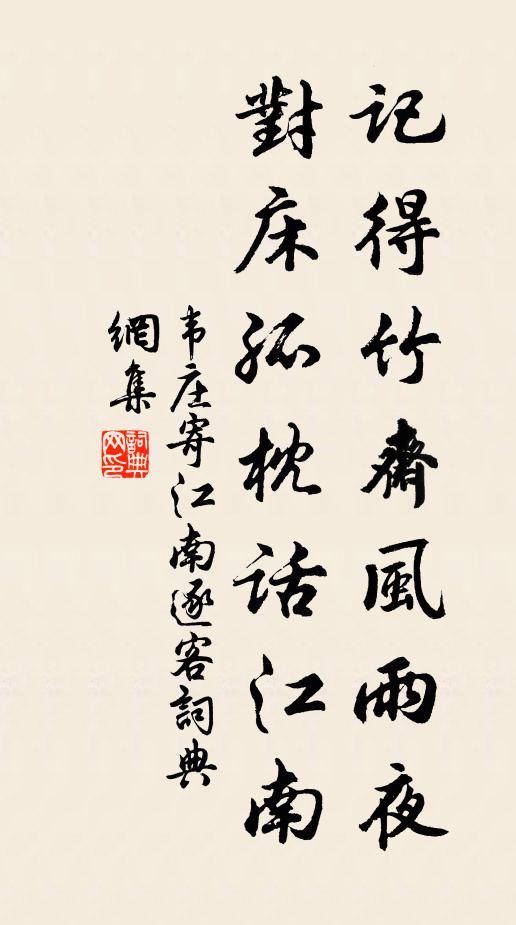 記得竹齋風雨夜
對床孤枕話江南
韦庄寄江南逐客詞典
網集
詞典网印